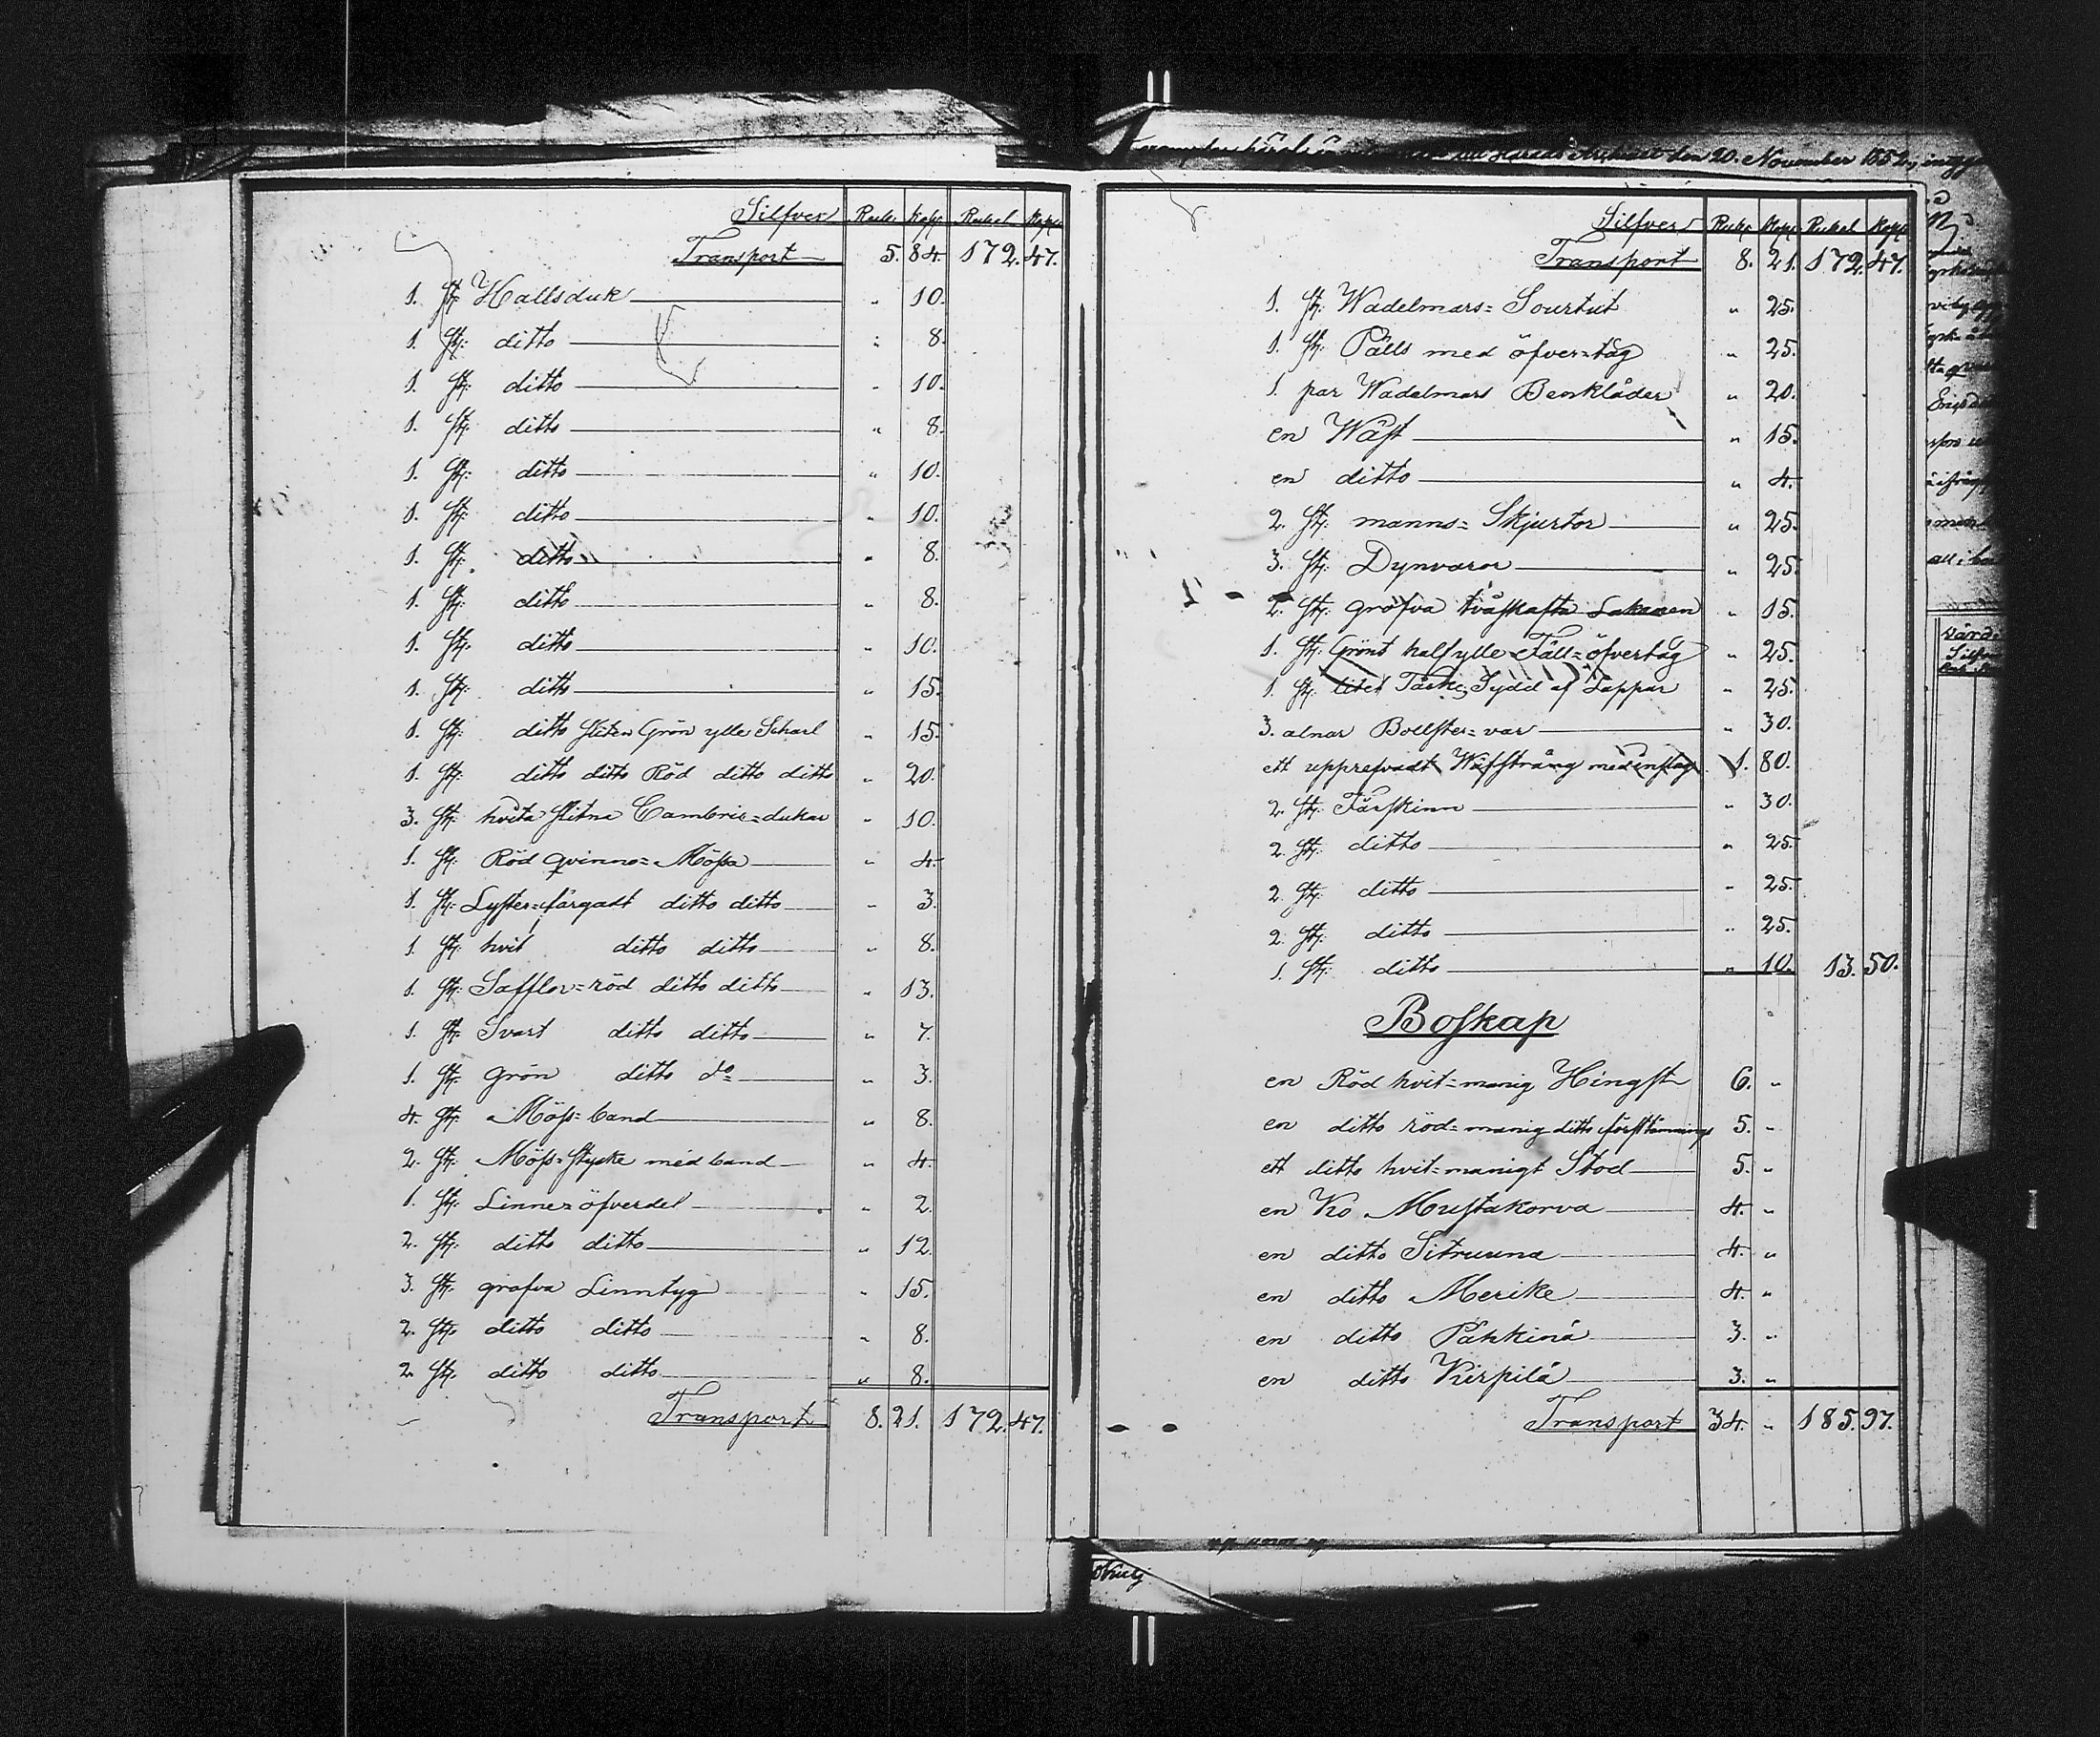 Silfver Rub. Kop. Rubel Kop.
Transport 5. 84. 172. 47.
1. St: Hallsduk " 10.
1. St: ditto " 8.
1. St: ditto " 10.
1. St: ditto " 8.
1. St: ditto " 10.
1. St: ditto " 10.
1. St: ditto " 8.
1. St: ditto " 8.
1. St: ditto " 10.
1. St: ditto " 15.
1. St: ditto sliten Grön ylle Scharl " 15.
1. St: ditto ditto Röd ditto ditto " 20.
3. St: hvita slitna Cambric=dukar " 10.
1. St: Röd qvinno=Mössa " 4.
1. St: Lyster=färgadt ditto ditto " 3.
1. St: hvit ditto ditto " 8.
1. St: Safflor=röd ditto ditto " 13.
1. St: Svart ditto ditto " 7.
1. St: Grön ditto do " 3.
4. St: Möss=band " 8.
2. St: Möss=stycke med band " 4.
1. St: Linne=öfverdel " 2.
2. St: ditto ditto " 12.
3. St: grofva Linntyg " 15.
2. St: ditto ditto " 8.
2. St: ditto ditto " 8.
Transport 8. 21. 172. 47.
den 20. November 1852,
Silfver Rub. Kop. Rubel Kop.
Transport 8. 21. 172. 47.
1. St: Wadelmars=Sourtut " 25.
1. St: Pälls med öfver=tåg " 25.
1. par Wadelmars Benkläder " 20.
en Wäst " 15.
en ditto " 4.
2. St: manns=Skjurtor " 25.
3. St: Dynvaror " 25.
2. St: grofva tvåskafta Lakanen " 15.
1. St: Grönt halfylle Fäll=öfvertåg " 25.
1. St: litet Täcke, Sydd af Lappar " 25.
3. alnar Bollster=var " 30.
ett upprefvadt Wäfsträng med inslag 1. 80.
2. St: Fårskinn " 30.
2. St: ditto " 25.
2. St: ditto " 25.
2. St: ditto " 25.
1. St: ditto " 10. 13. 50.
Boskap
en Röd hvit=manig Hingst 6. "
en ditto röd=manig ditto 5. "
ett ditto hvit=manigt Stod 5. "
en Ko Mustakorva 4. "
en ditto Sitruuna 4. "
en ditto Merike 4. "
en ditto Pähkinä 3. "
en ditto Kirpilä 3. "
Transport 34. " 185. 97.